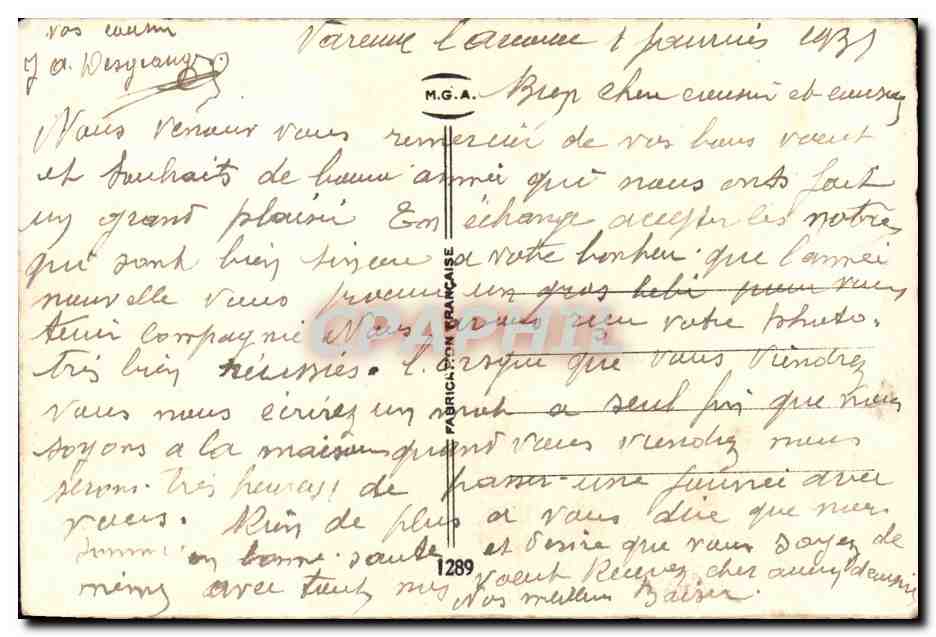 Varenne l'arconce 1 janvier 1931
M.G.A.
Bien cher cousin et cousine
Nous venons vous remercier de vos bons voeut
et souhaits de bonne année qui nous onts fait
un grand plaisir En échange accepter les notres
qui sont bien sincere a votre bonheur. que l'année
nouvelle vous procure un gros bébé pour vous
tenir compagnie Nous avons reçu votre photo.
très bien réussies. lorsque que vous viendrez
vous nous écrirez un mot a seul fin que nous
soyons a la maison quand vous viendrez nous
serons très heureus de passer une journée avec
vous. Rien de plus a vous dire que nous
sommes en bonne santé et desire que vous soyez de
même avec tout nos voeut Recevez cher cousin et cousine
Nos meilleurs Baiser.
vos cousin
J A. Desgrange
FABRICATION FRANÇAISE
1289
CPAPHIL